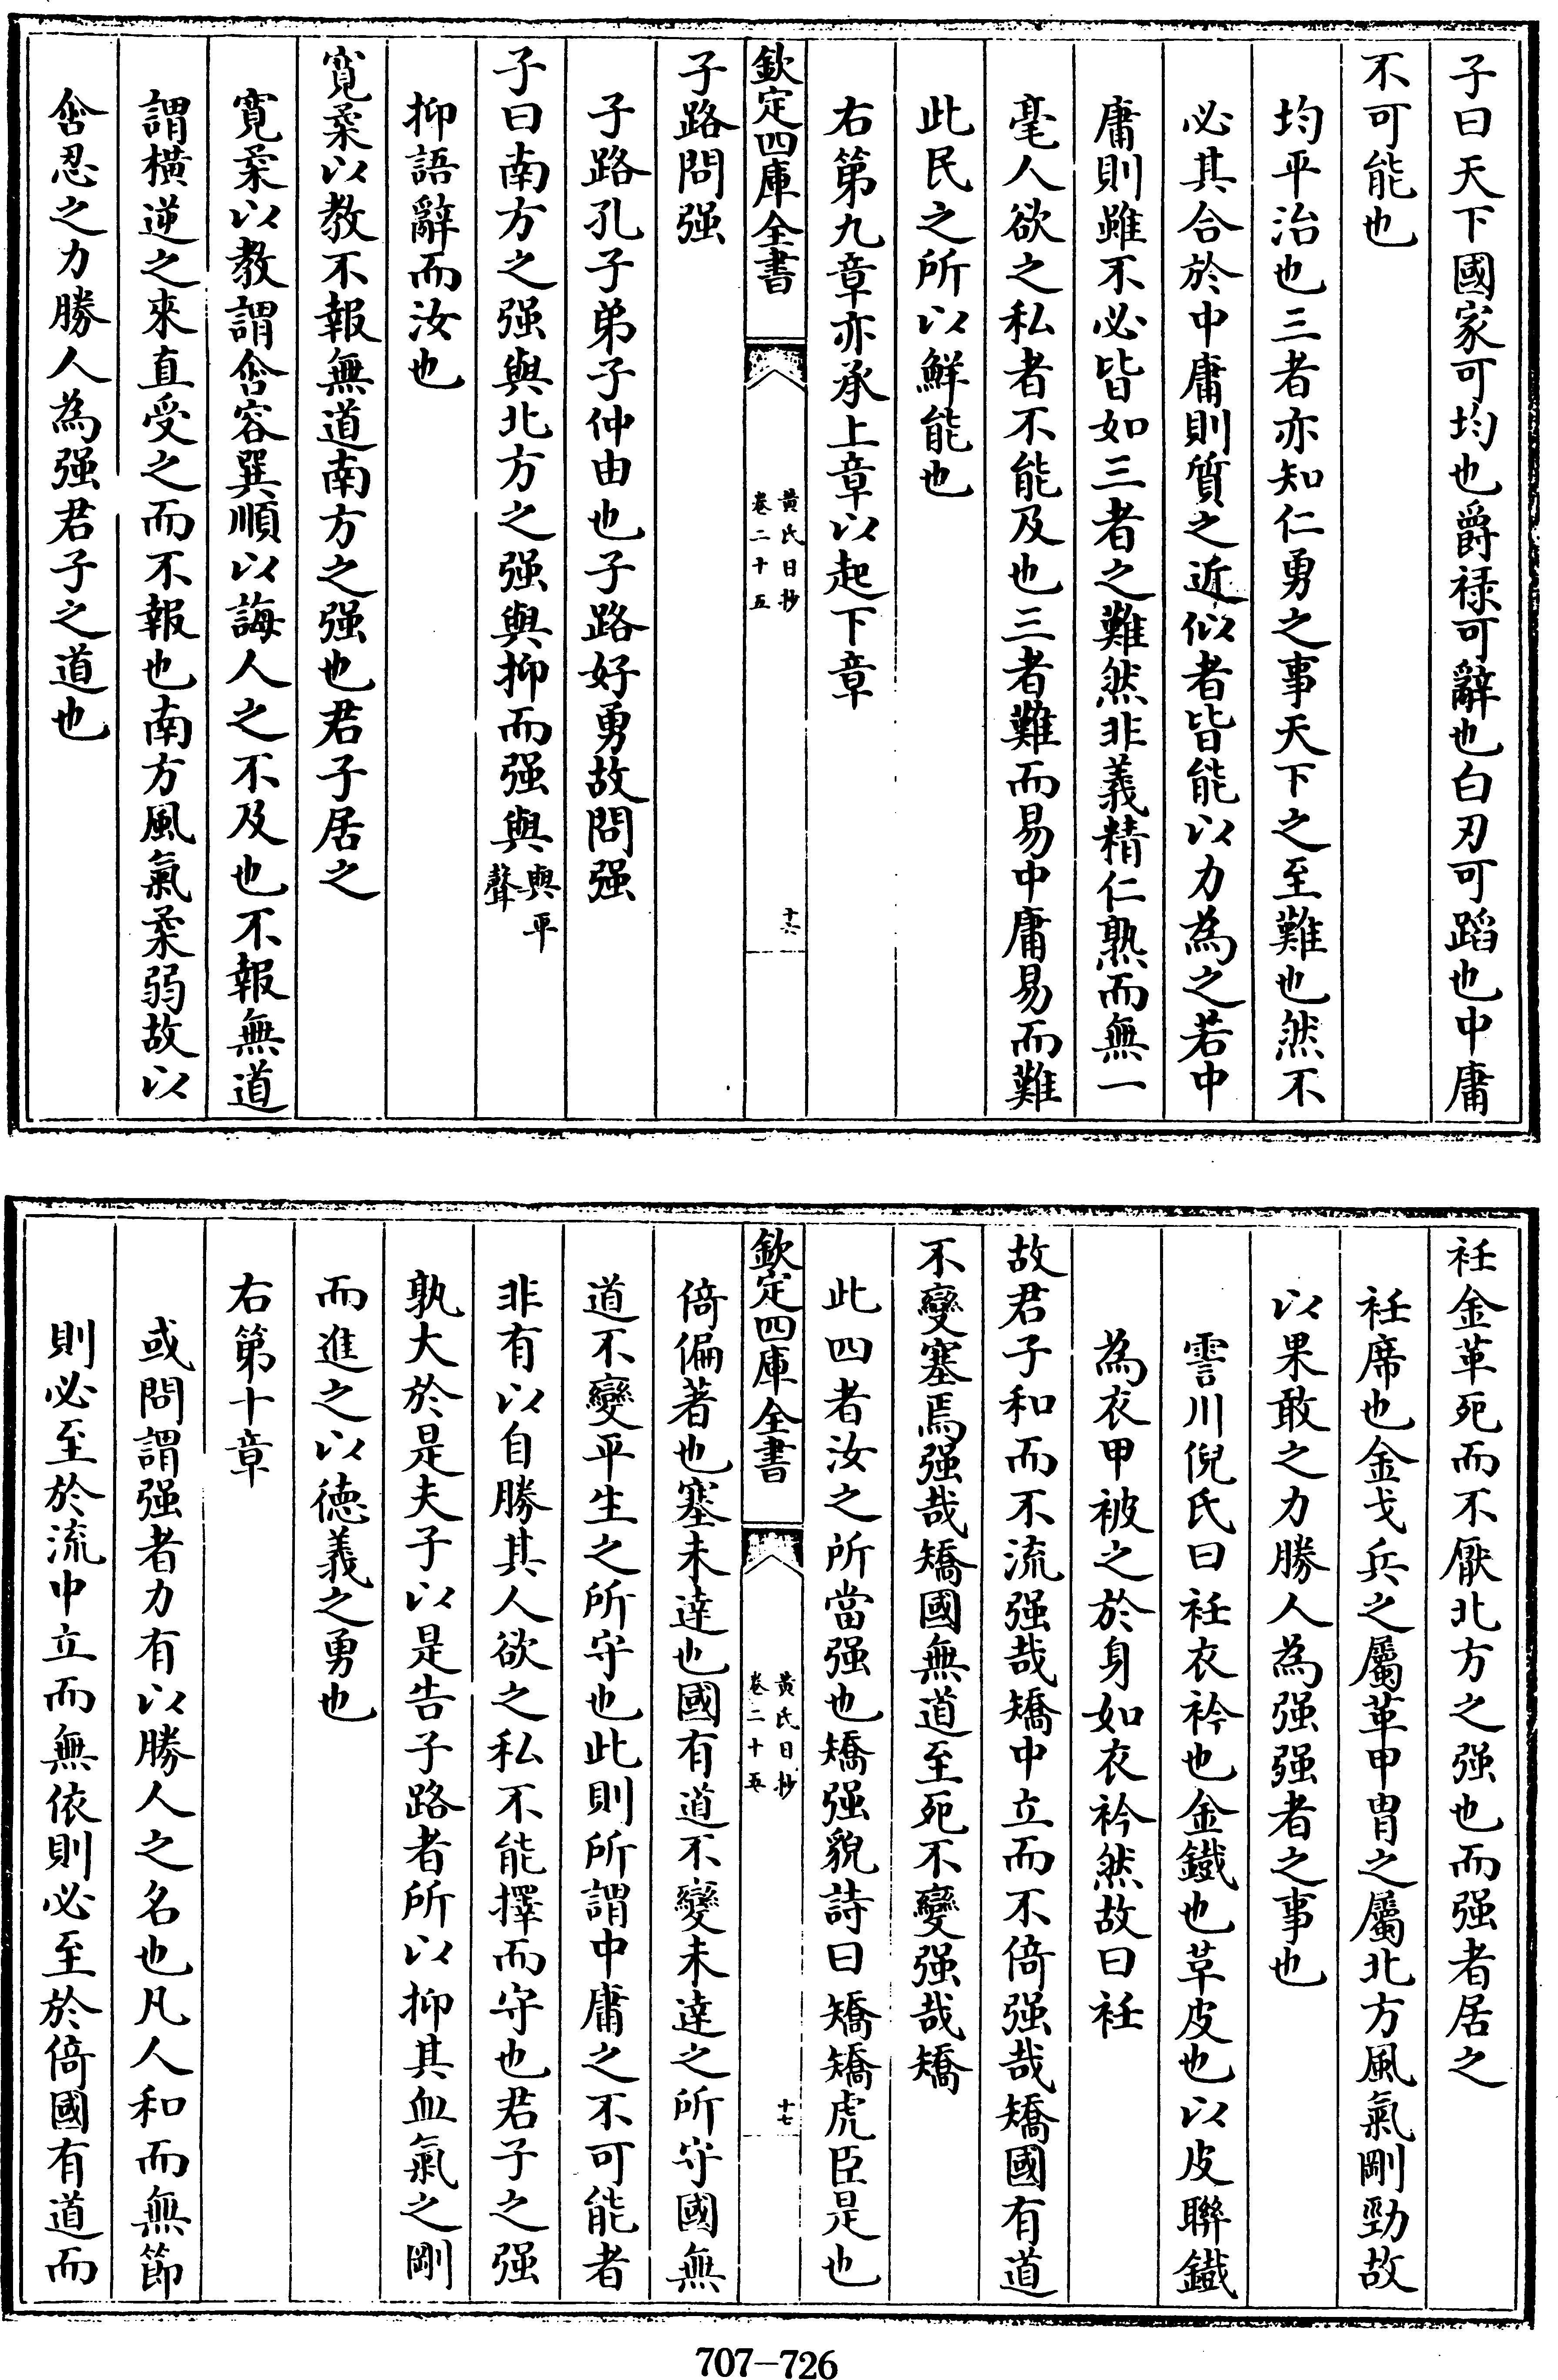 子曰天下國家可均也爵禄可辭也白刃可蹈也中庸
不可能也
均平治也三者亦知仁勇之事天下之至難也然不
必其合於中庸則質之近似者皆能以力為之若中
庸則雖不必皆如三者之難然非義精仁熟而無一
毫人欲之私者不能及也三者難而易中庸易而難
此民之所以鮮能也
右第九章亦承上章以起下章
欽定四庫全書
黄氏日抄
卷二十五
十六
子路問强
子路孔子弟子仲由也子路好勇故問强
子曰南方之强與北方之强與抑而强與與平聲
抑語辭而汝也
寛柔以教不報無道南方之强也君子居之
寛柔以教謂含容巽順以誨人之不及也不報無道
謂横逆之來直受之而不報也南方風氣柔弱故以
含忍之力勝人為强君子之道也
衽金革死而不厭北方之强也而强者居之
衽席也金戈兵之屬革甲胄之屬北方風氣剛勁故
以果敢之力勝人為强强者之事也
霅川倪氏曰衽衣衿也金鐵也革皮也以皮聯鐵
為衣甲被之於身如衣衿然故曰衽
故君子和而不流强哉矯中立而不倚强哉矯國有道
不變塞焉强哉矯國無道至死不變强哉矯
此四者汝之所當强也矯强貌詩曰矯矯虎臣是也
欽定四庫全書
黄氏日抄
卷二十五
十七
倚偏著也塞未達也國有道不變未達之所守國無
道不變平生之所守也此則所謂中庸之不可能者
非有以自勝其人欲之私不能擇而守也君子之强
孰大於是夫子以是告子路者所以抑其血氣之剛
而進之以德義之勇也
右第十章
或問謂强者力有以勝人之名也凡人和而無節
則必至於流中立而無依則必至於倚國有道而
707-726